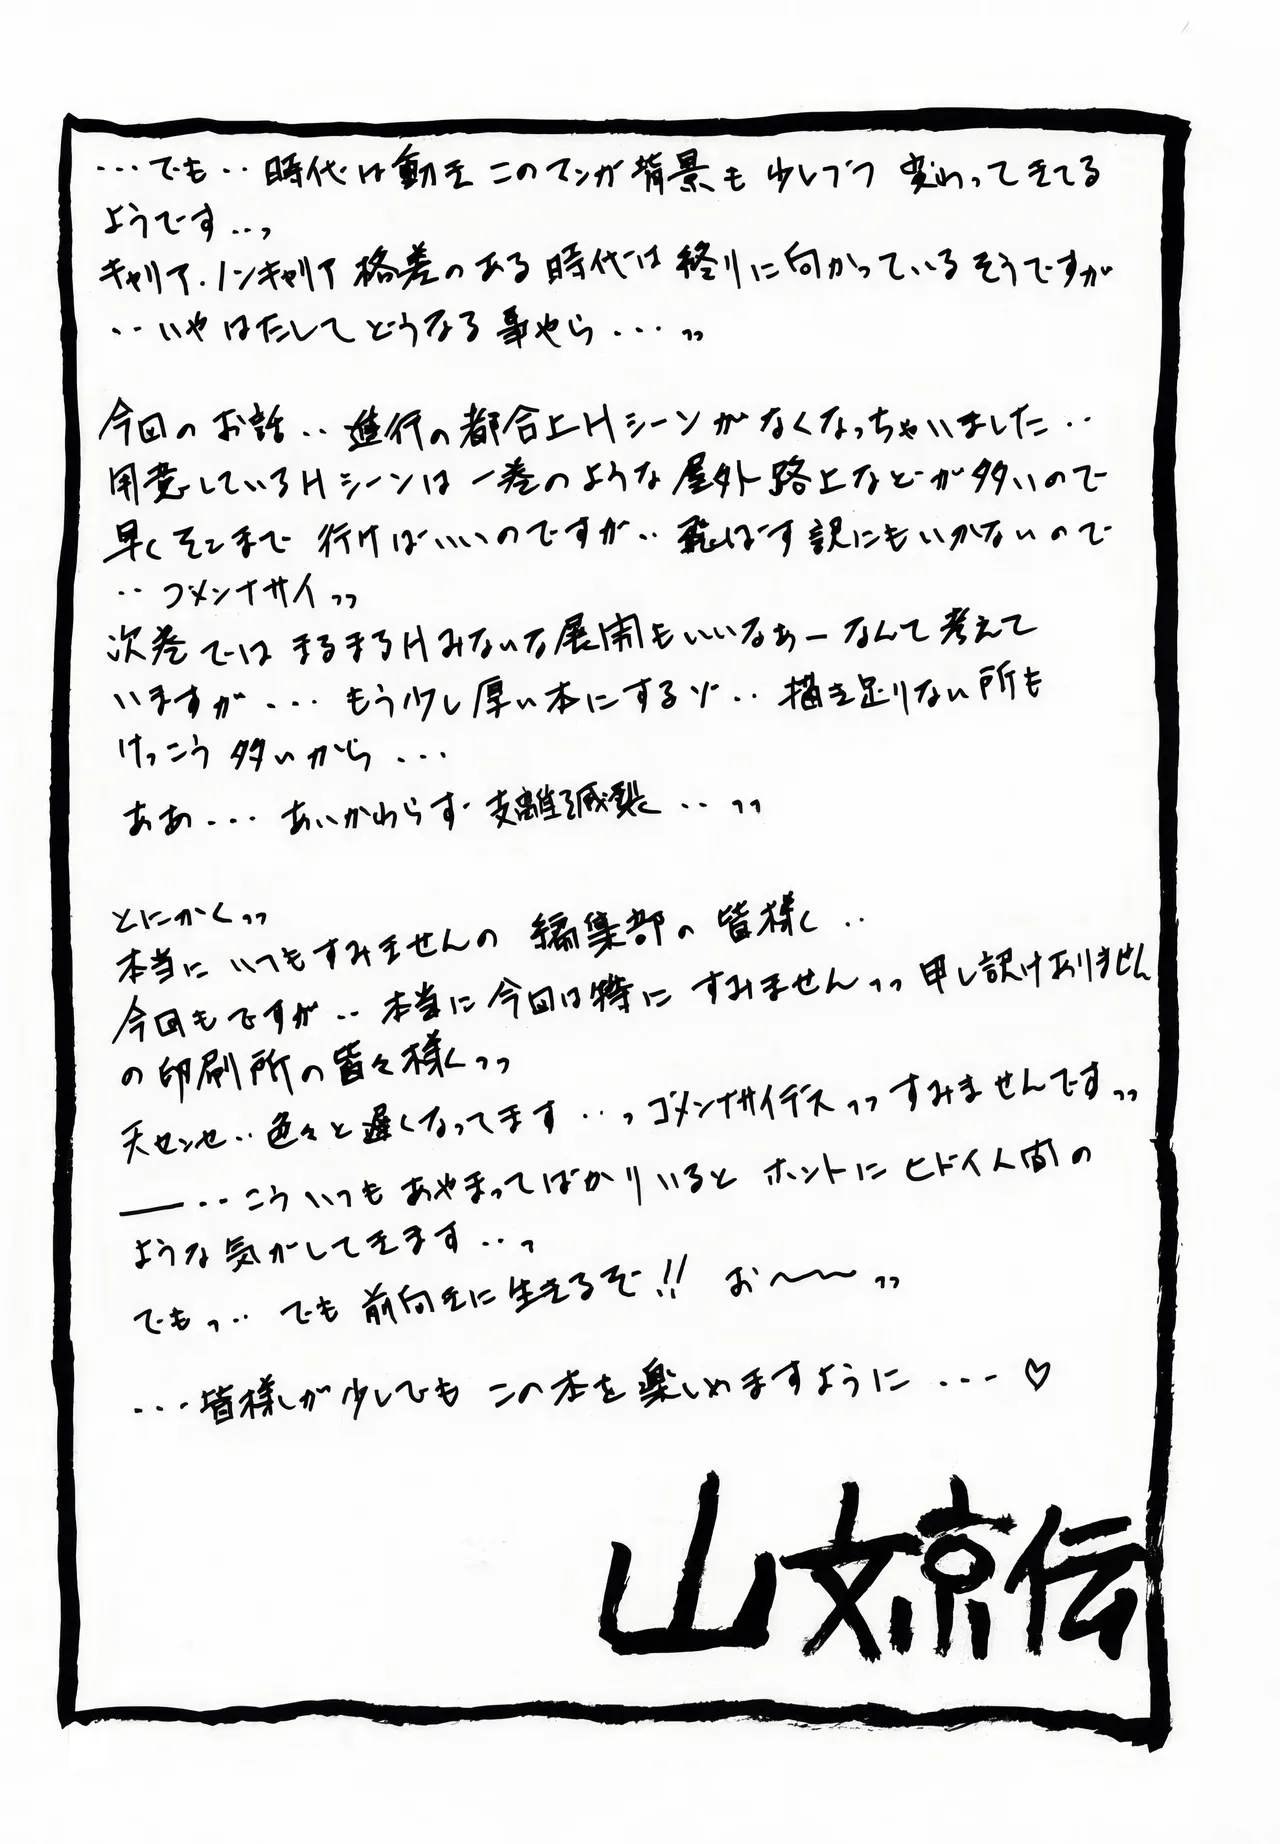 ・・・でも・・時代は動き このマンガ背景も 少しづつ 変わってきてる
ようです・・っ
キャリア・ノンキャリア 格差のある 時代は 終りに向かっているそうですが
・・いや はたして どうなる 事やら・・・っっ
今回の お話・・進行の都合上Hシーンがなくなっちゃいました・・
用意しているHシーンは 一巻のような 屋外 路上などが多いので
早くそこまで 行けばいいのですが・・飛ばす訳にもいかないので
・・ゴメンナサイっっ
次巻では まるまるHみないな展開もいいなぁー なんて 考えて
いますが・・・ もう少し厚い本にするゾ・・ 描き足りない所も
けっこう 多いから・・・
ああ・・・ あいかわらず 支離滅裂・・っっ
とにかくっっ
本当に いつもすみませんの 編集部の 皆様く・・
今回もですが・・ 本当に今回は特に すみませんっっ 申し訳けありません
の印刷所の皆々様くっっ
天センセ・・色々と遅くなってます・・っゴメンナサイデスっっすみませんですっっ
――・・こう いつも あやまってばかりいると ホントに ヒドイ人間の
ような気がしてきます・・っ
でもっ・・ でも 前向きに生きるぞ!! お〜〜っっ
・・・皆様しが 少しでも この本を楽しめますように・・・♡
山文京伝